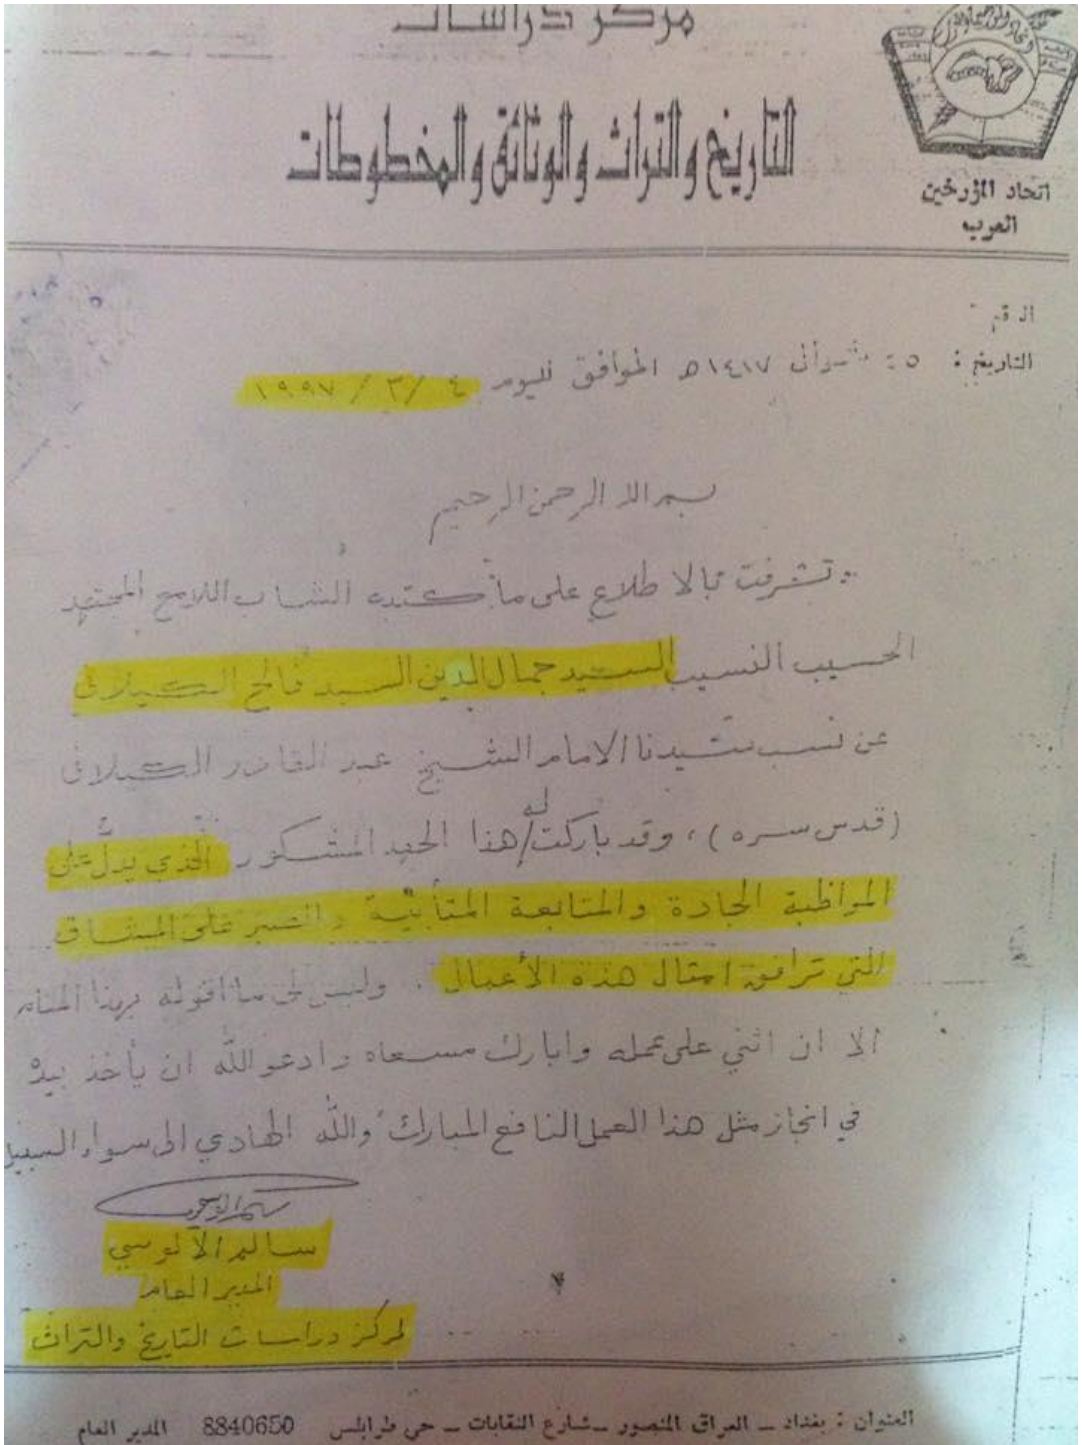 مركز دراسات
التاريخ والتراث والوثائق والمخطوطات
اتحاد المؤرخين
العرب
الرقم
التاريخ : ١٤١٧ هـ الموافق لليوم ٤ / ٣ / ١٩٩٧
بسم الله الرحمن الرحيم
تشرفت بالاطلاع على ما كتبه الشاب اللامع المجتهد
الحسيب النسيب السيد جمال الدين السيد فالح الكيلاني
عن نسب سيدنا الامام الشيخ عبد القادر الكيلاني
(قدس سره) ، وقد باركت له هذا الجهد المشكور الذي يدل على
المواظبة الجادة والمتابعة المتأنية والصبر على المشاق
التي ترافق امثال هذه الأعمال . وليس لي ما اقوله بهذا المقام
الا ان اثني على عمله وابارك مسعاه وادعو الله ان يأخذ بيده
في انجاز مثل هذا العمل النافع المبارك والله الهادي الى سواء السبيل
سالم الآلوسي
المدير العام
لمركز دراسات التاريخ والتراث
العنوان : بغداد - العراق المنصور - شارع النقابات - حي طرابلس 8840650 المدير العام